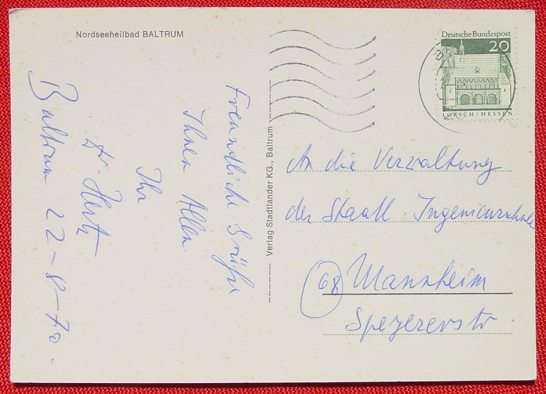 Nordseeheilbad BALTRUM
Freundliche Grüße
Ihnen Allen
Ihr
Dr Hertz
Baltrum 22-8-70.
Verlag Stadtlander KG., Baltrum
Deutsche Bundespost
20
LORSCH / HESSEN
An die Verwaltung
der Staatl. Ingenieurschule
68 Mannheim
Speyererstr.